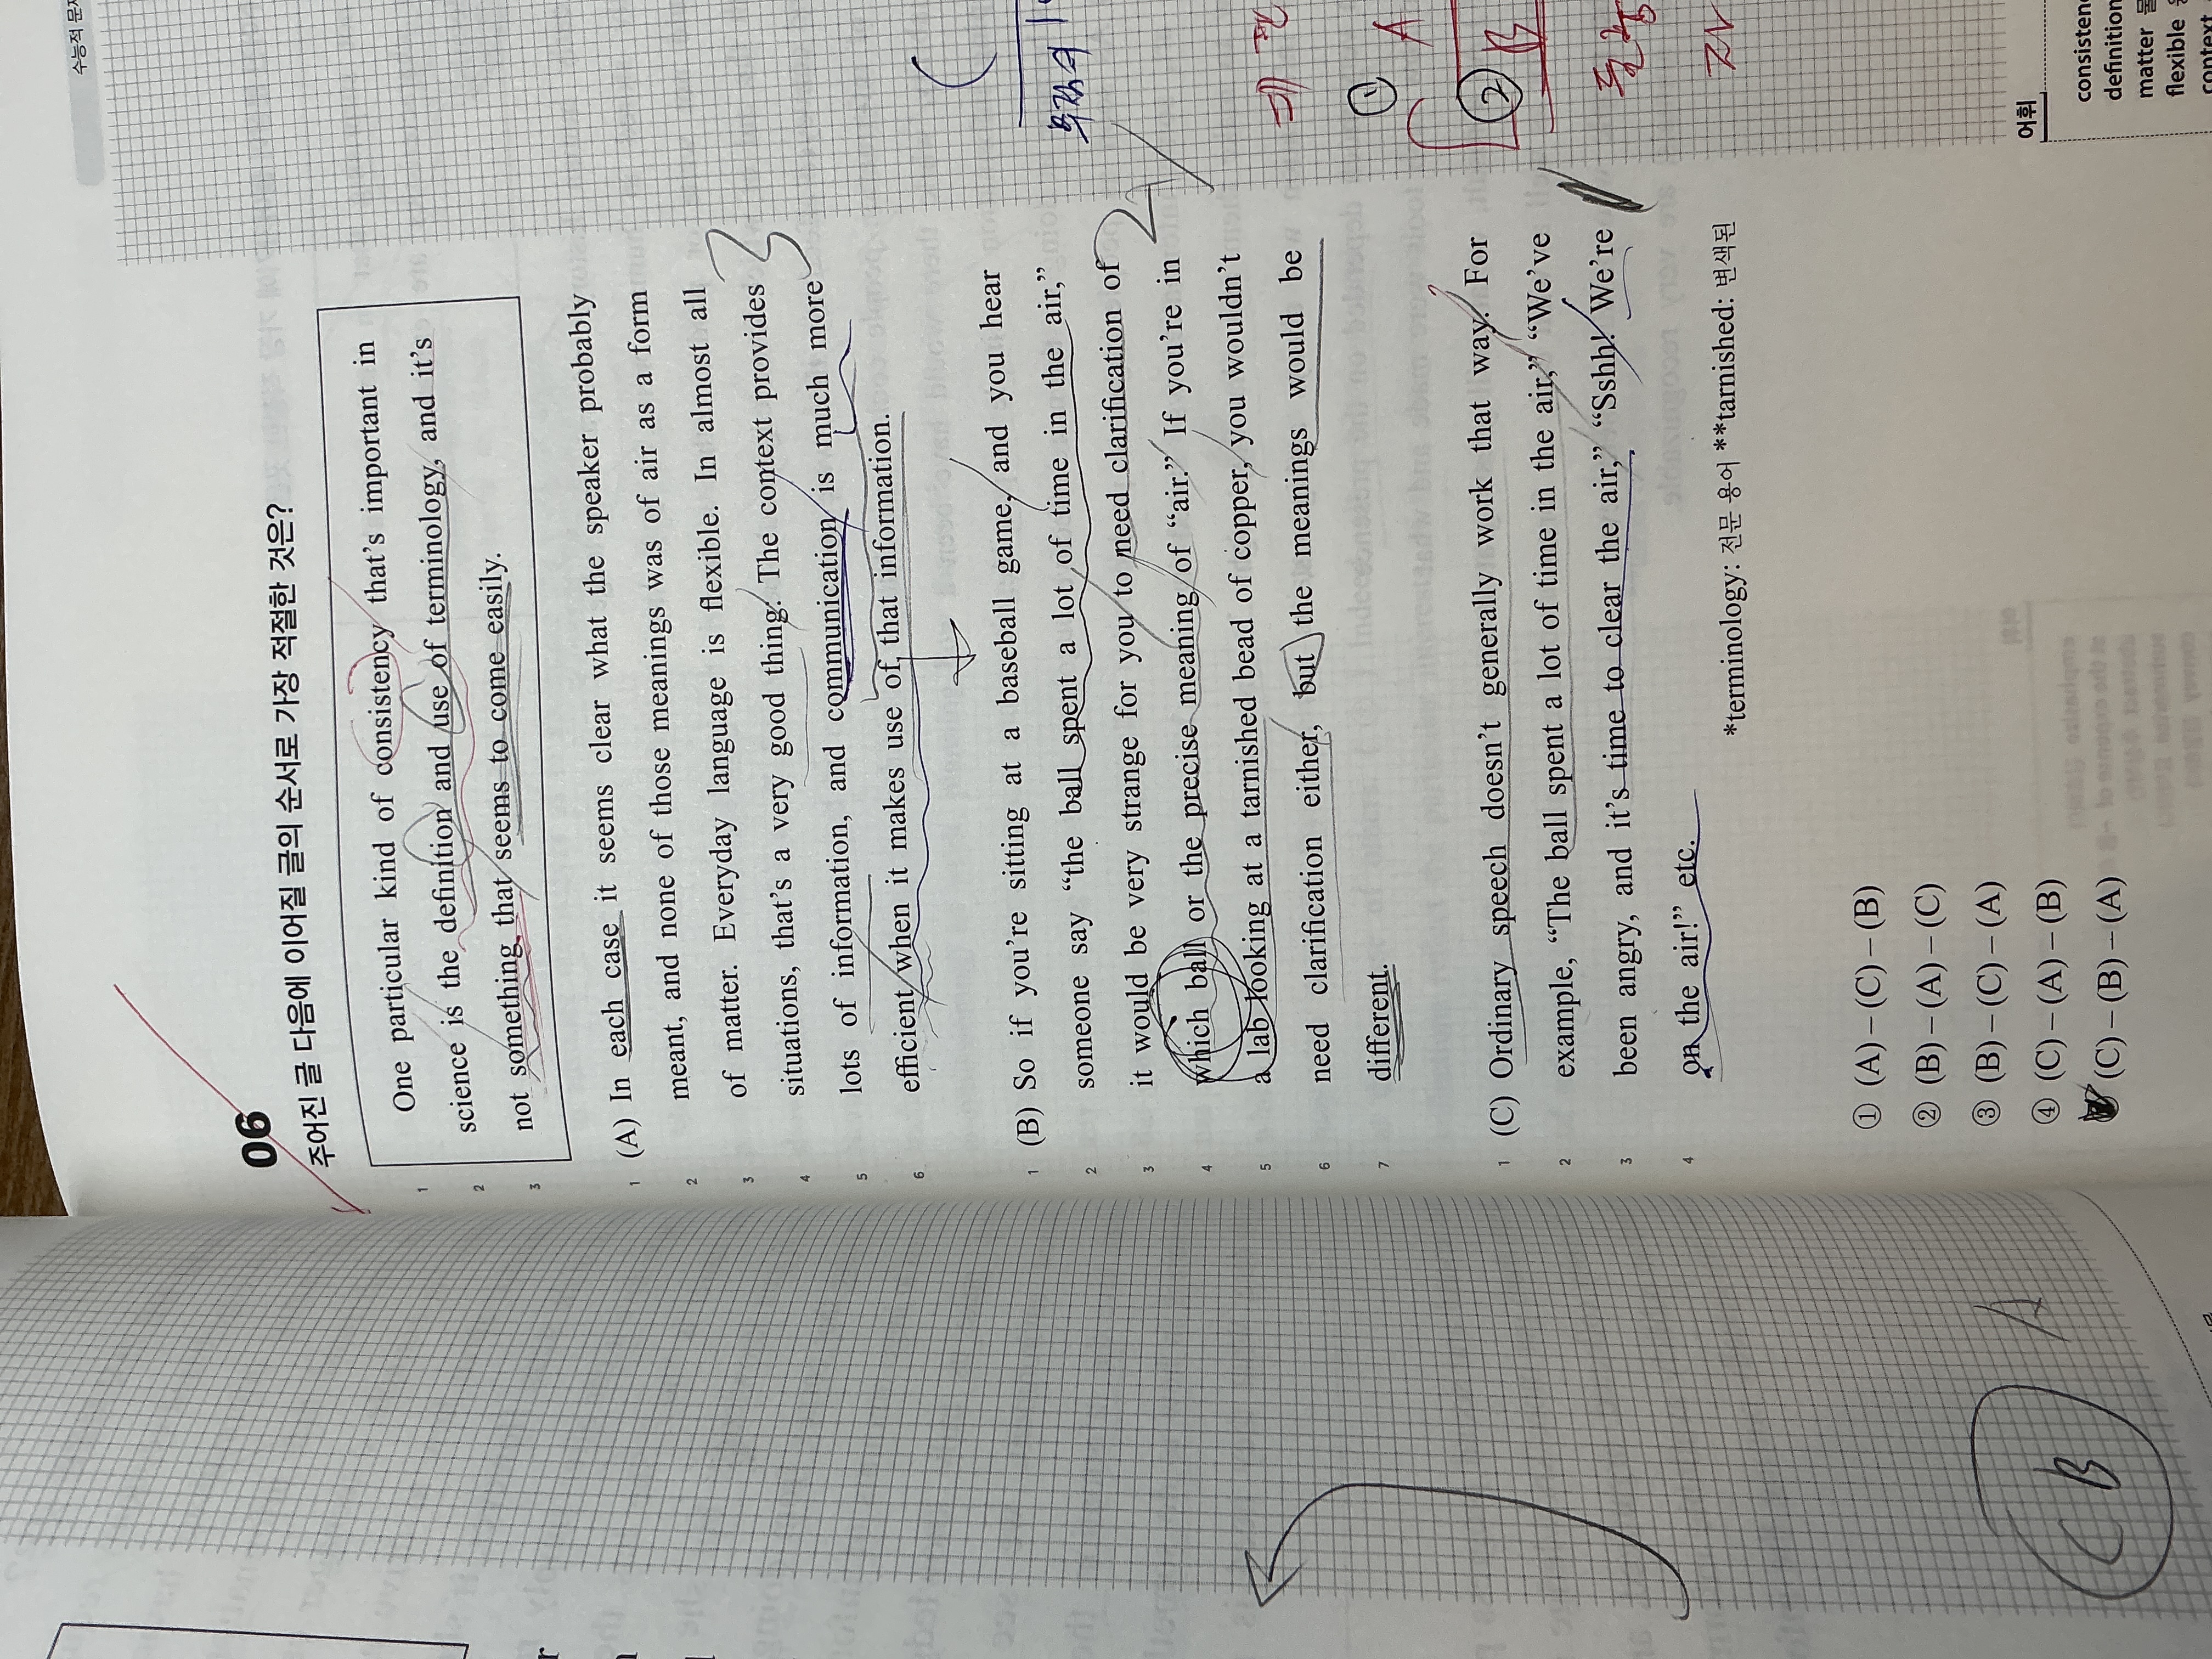 수능적
06
주어진 글 다음에 이어질 글의 순서로 가장 적절한 것은?
1 One particular kind of consistency that's important in
2 science is the definition and use of terminology, and it's
3 not something that seems to come easily.
1 (A) In each case it seems clear what the speaker probably
2 meant, and none of those meanings was of air as a form
3 of matter. Everyday language is flexible. In almost all
4 situations, that's a very good thing. The context provides
5 lots of information, and communication is much more
6 efficient when it makes use of that information.
3
1 (B) So if you're sitting at a baseball game, and you hear
2 someone say “the ball spent a lot of time in the air,”
3 it would be very strange for you to need clarification of
4 which ball or the precise meaning of “air.” If you're in
5 a lab looking at a tarnished bead of copper, you wouldn't
6 need clarification either, but the meanings would be
7 different.
2
1 (C) Ordinary speech doesn't generally work that way. For
2 example, “The ball spent a lot of time in the air,” “We've
3 been angry, and it's time to clear the air,” “Sshh! We're
4 on the air!” etc.
*terminology: 전문 용어 **tarnished: 변색된
① (A) – (C) – (B)
② (B) – (A) – (C)
③ (B) – (C) – (A)
④ (C) – (A) – (B)
(C) – (B) – (A)
① A
② B
어휘
definition
matter
flexible
C B A